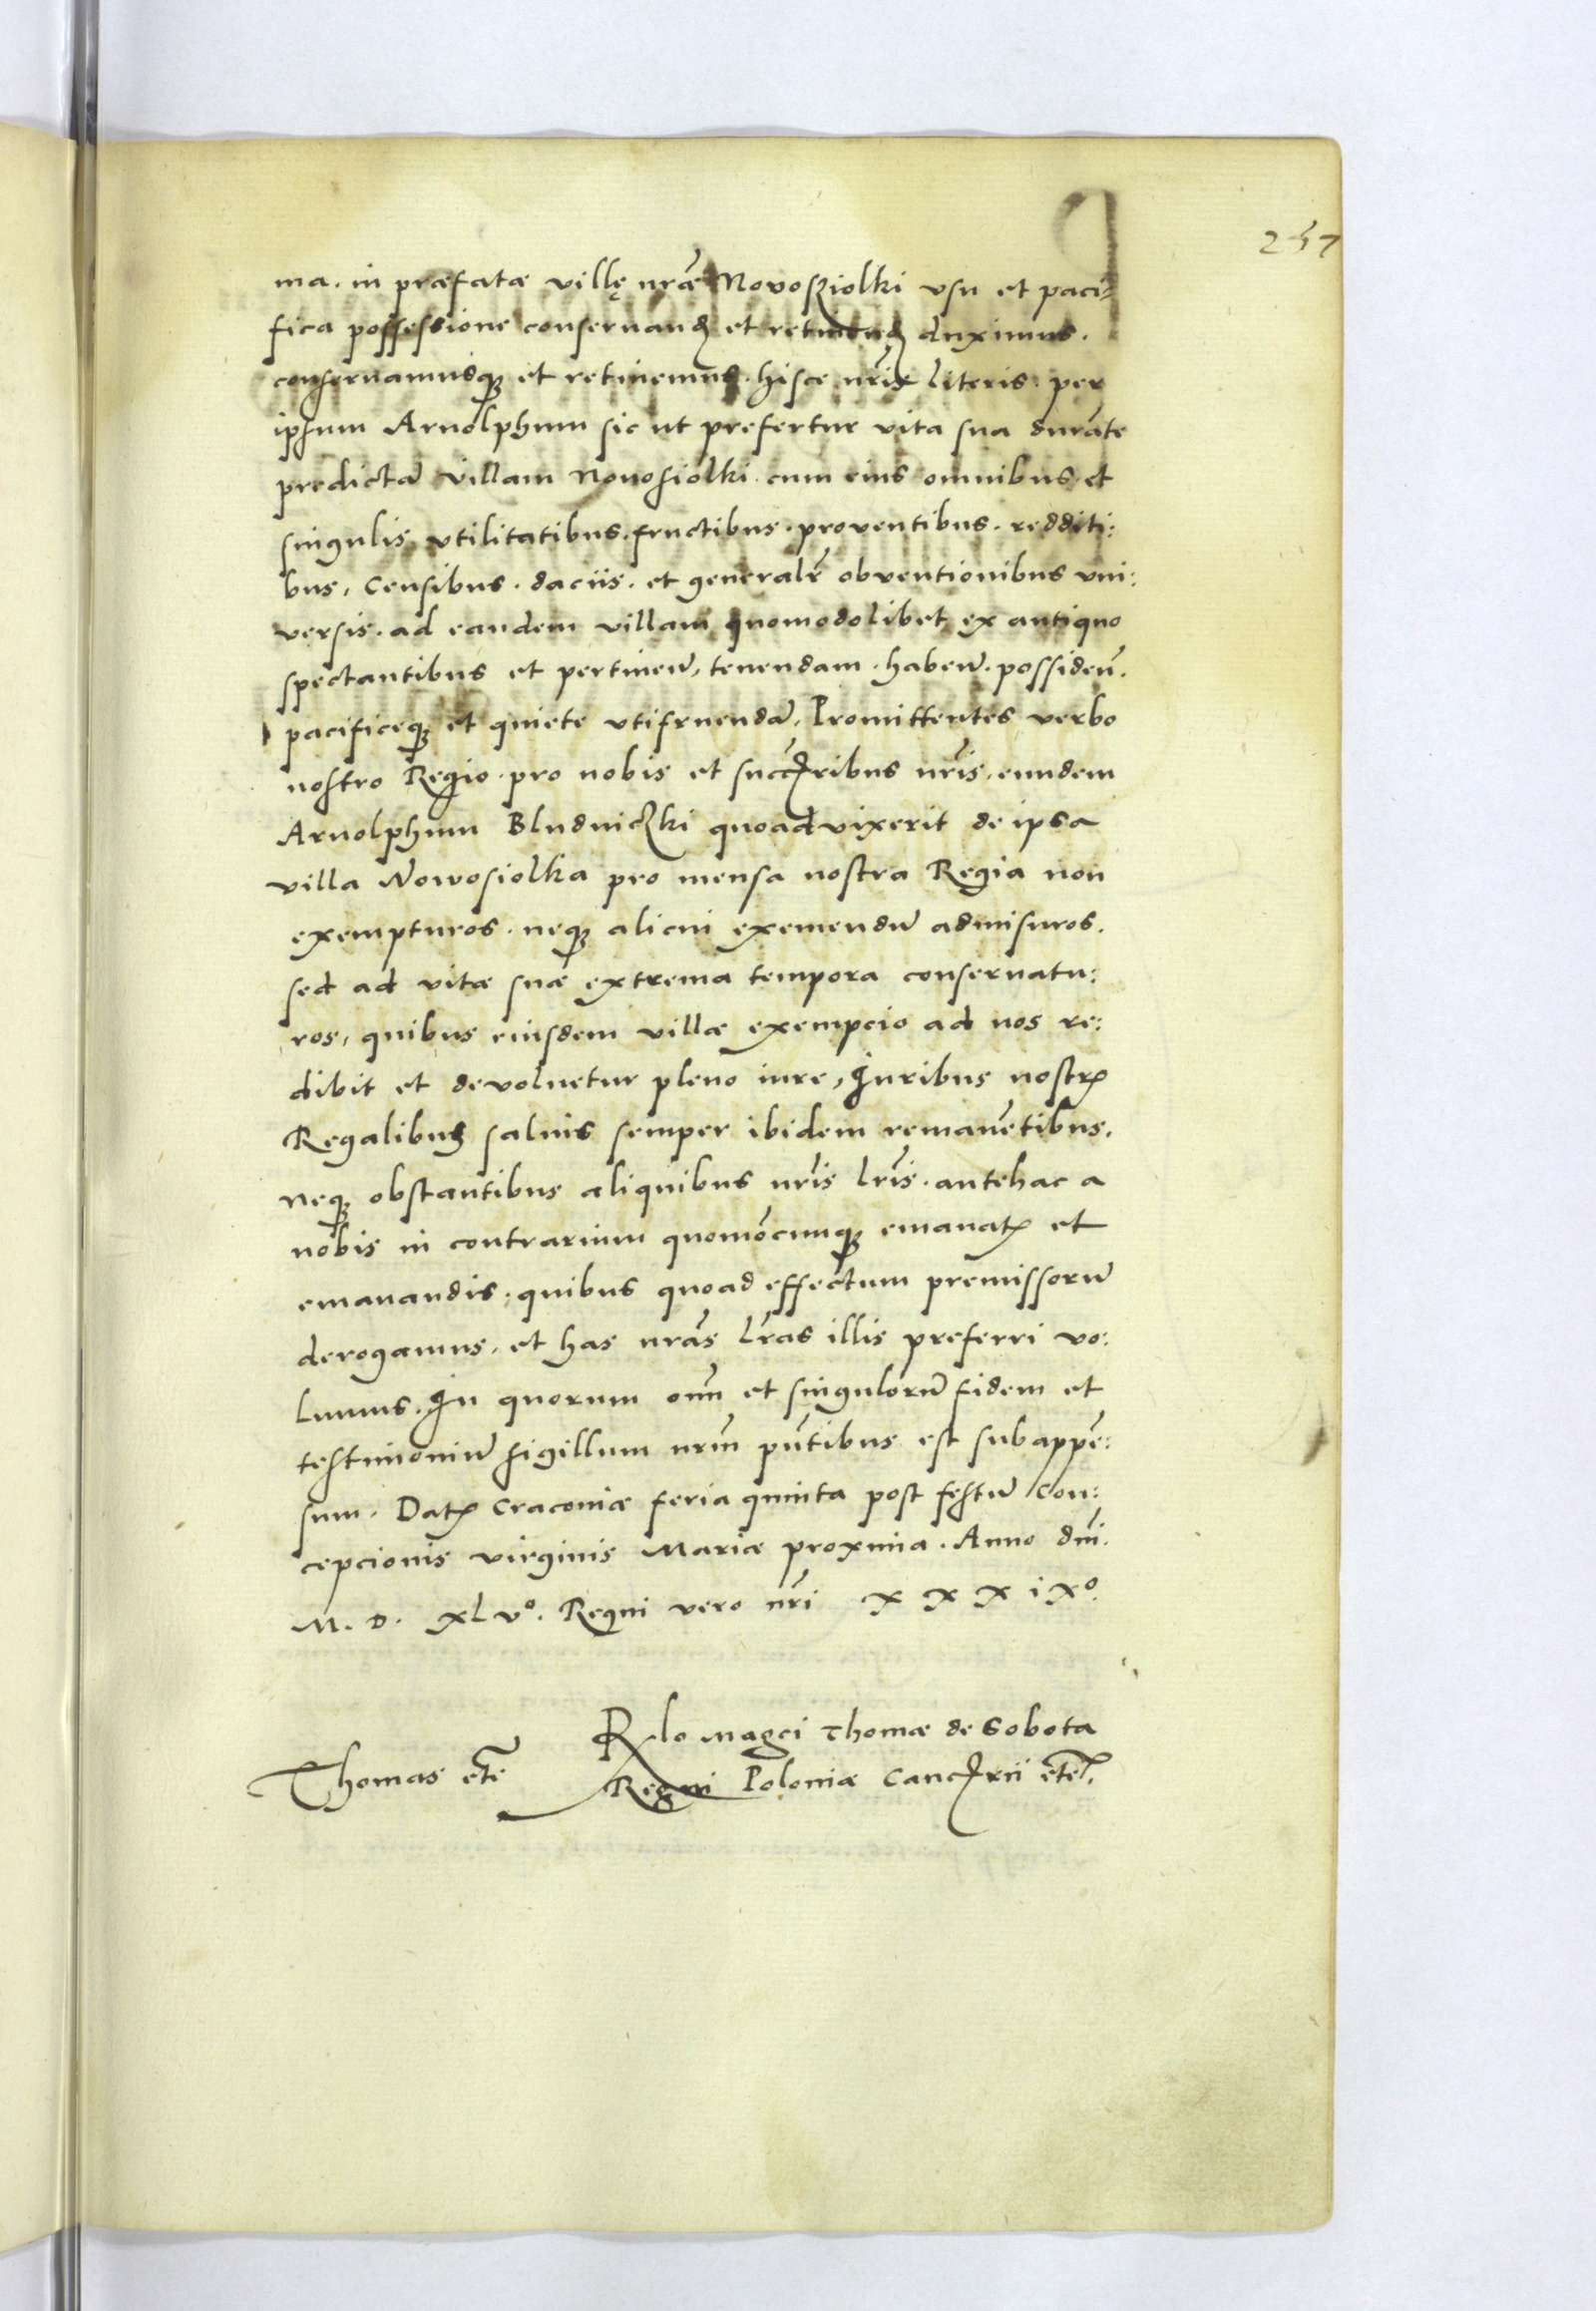 257
ma. in præfatæ villę nr̃æ Novosziolki vsu et paci-
fica possessione conseruand et retinend duximus.
conseruamusq́ et retinemus. hisce nr̃is literis. per
ipsum Arnolphum sic ut prefertur vita sua durãte
predictã villam Novosiolki. cum eius omnibus et
singulis vtilitatibus. fructibus. proventibus. redditi:
bus, censibus. daciis. et generalr̃ obventionibus vni:
versis. ad eandem villam quomodolibet ex antiquo
spectantibus et pertineñ, tenendam. habeñ. possideñ.
pacificeq́ et quiete vtifruendã. Promittentes verbo
nostro Regio. pro nobis et succr̃ibus nr̃is. eundem
Arnolphum Bludniczki quoad vixerit de ipsa
villa Nowosiolka pro mensa nostra Regia non
exempturos. neq́ alicui exemendũ admisuros.
sed ad vitæ suæ extrema tempora conseruatu:
ros, quibus eiusdem villæ exempcio ad nos re:
dibit et devoluetur pleno iure, Iuribus nostr̃
Regalibus saluis semper ibidem remanẽtibus.
neq́ obstantibus aliquibus nr̃is lr̃is. antehac a
nobis in contrarium quomõcunq́ emanat̃ et
emanandis. quibus quoad effectum premissorũ
derogamus. et has nr̃as lr̃as illis preferri vo:
lumus. In quorum oñm et singulorũ fidem et
testimoniũ sigillum nr̃m pñtibus est subappẽ:
sum. Dat̃ Cracoviæ feria quinta post festũ Con:
cepcionis virginis Mariæ proxima. Anno dñi.
M. D. XLVº. Regni vero nr̃i XXXIXº.
Rlo Magci Thomæ de Sobota
Thomas etc̃ Regni Poloniæ Cancr̃ii etc̃.